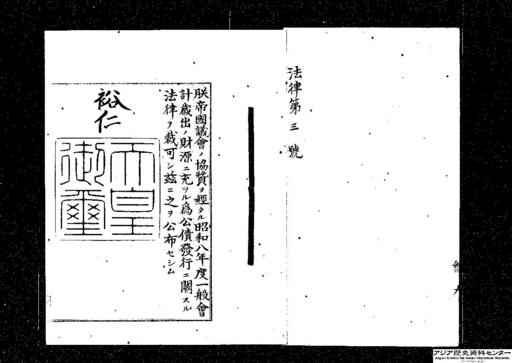 法律第三號
朕帝國議會ノ協贊ヲ經タル昭和八年度一般會
計歲出ノ財源ニ充ツル爲公債發行ニ關スル
法律ヲ裁可シ玆ニ之ヲ公布セシム
裕仁
天皇
御璽
アジア歴史資料センター
Japan Center for Asian Historical Records